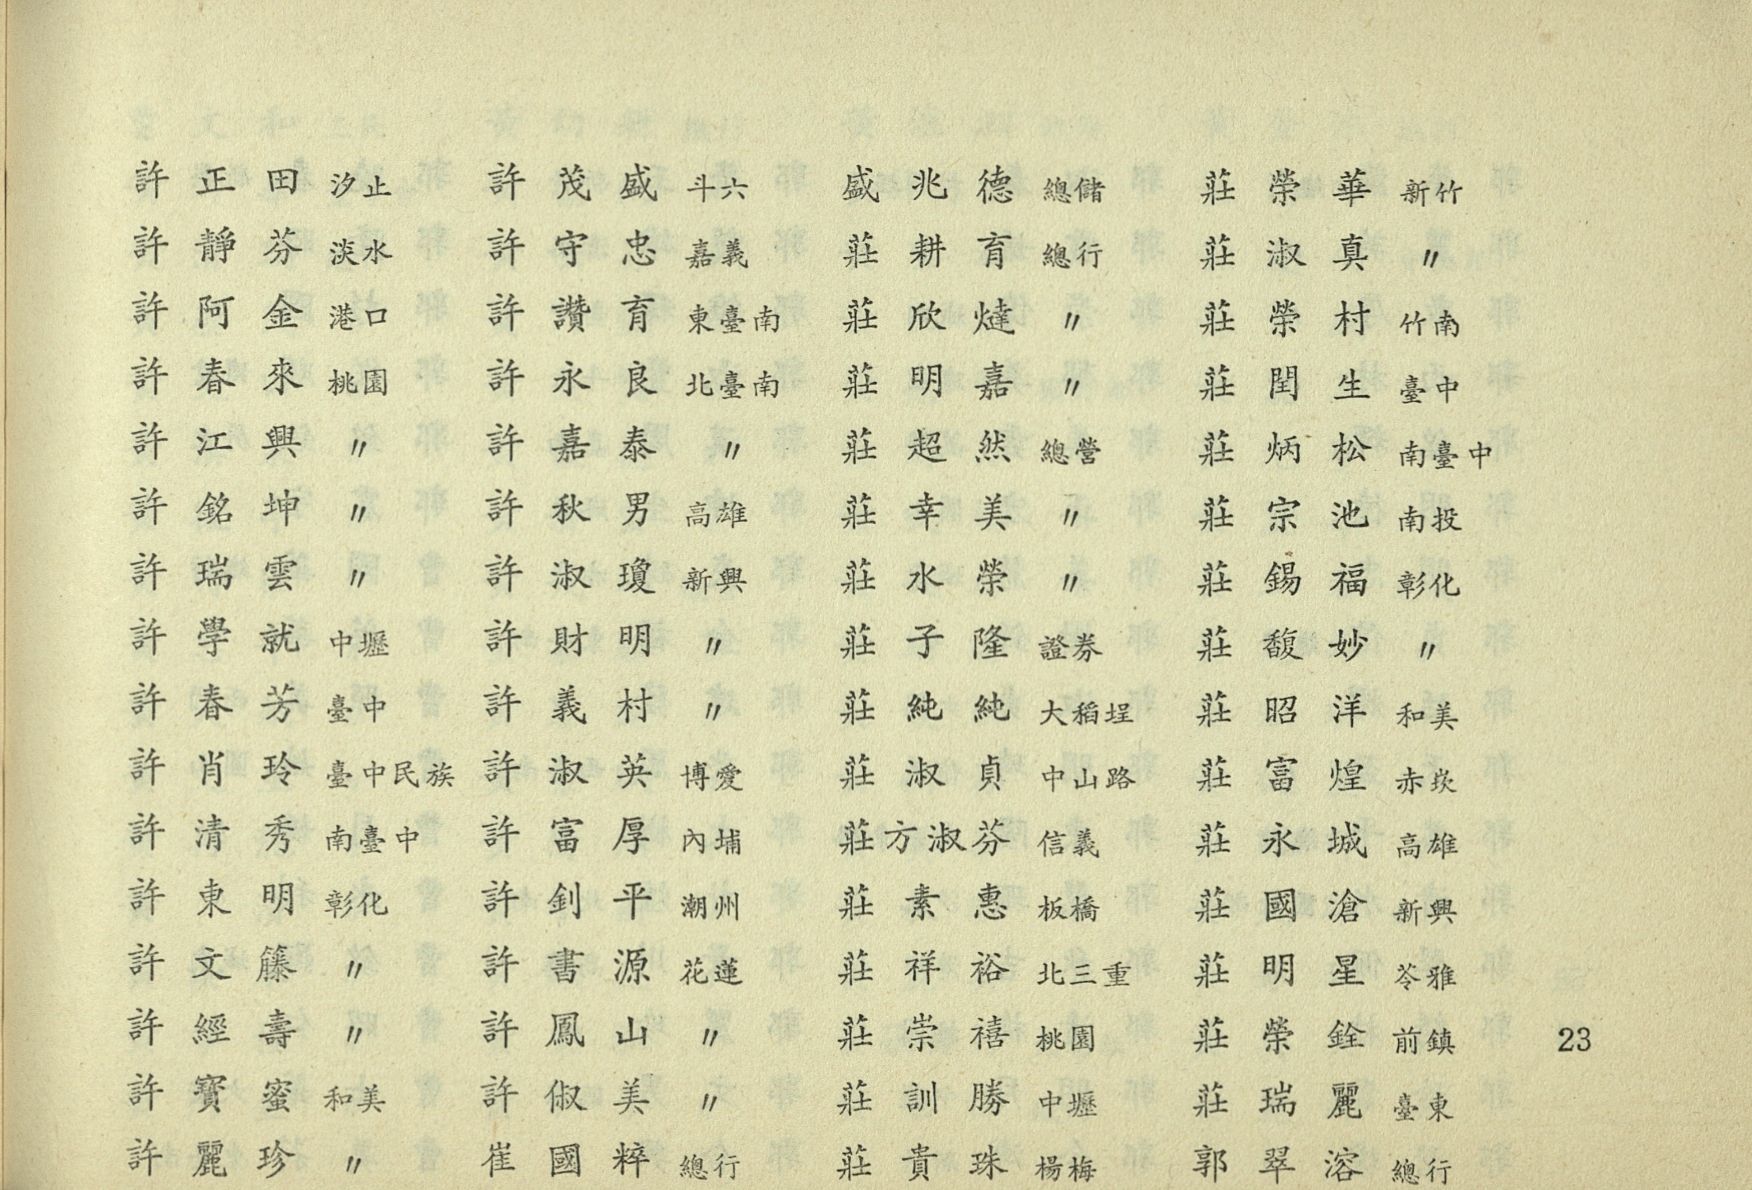 許正田 汐止
許靜芬 淡水
許阿金 港口
許春來 桃園
許江興 〃
許銘坤 〃
許瑞雲 〃
許學就 中壢
許春芳 臺中
許肖玲 臺中民族
許清秀 南臺中
許東明 彰化
許文籐 〃
許經壽 〃
許寶蜜 和美
許麗珍 〃
許茂盛 斗六
許守忠 嘉義
許讚育 東臺南
許永良 北臺南
許嘉泰 〃
許秋男 高雄
許淑瓊 新興
許財明 〃
許義村 〃
許淑英 博愛
許富厚 內埔
許釗平 潮州
許書源 花蓮
許鳳山 〃
許俶美 〃
崔國粹 總行
盛兆德 總儲
莊耕育 總行
莊欣燵 〃
莊明嘉 〃
莊超然 總營
莊幸美 〃
莊水榮 〃
莊子隆 證券
莊純純 大稻埕
莊淑貞 中山路
莊方淑芬 信義
莊素惠 板橋
莊祥裕 北三重
莊崇禧 桃園
莊訓勝 中壢
莊貴珠 楊梅
莊榮華 新竹
莊淑真 〃
莊榮村 竹南
莊閏生 臺中
莊炳松 南臺中
莊宗池 南投
莊錫福 彰化
莊馥妙 〃
莊昭洋 和美
莊富煌 赤崁
莊永城 高雄
莊國滄 新興
莊明星 苓雅
莊榮銓 前鎮
莊瑞麗 臺東
郭翠溶 總行
23